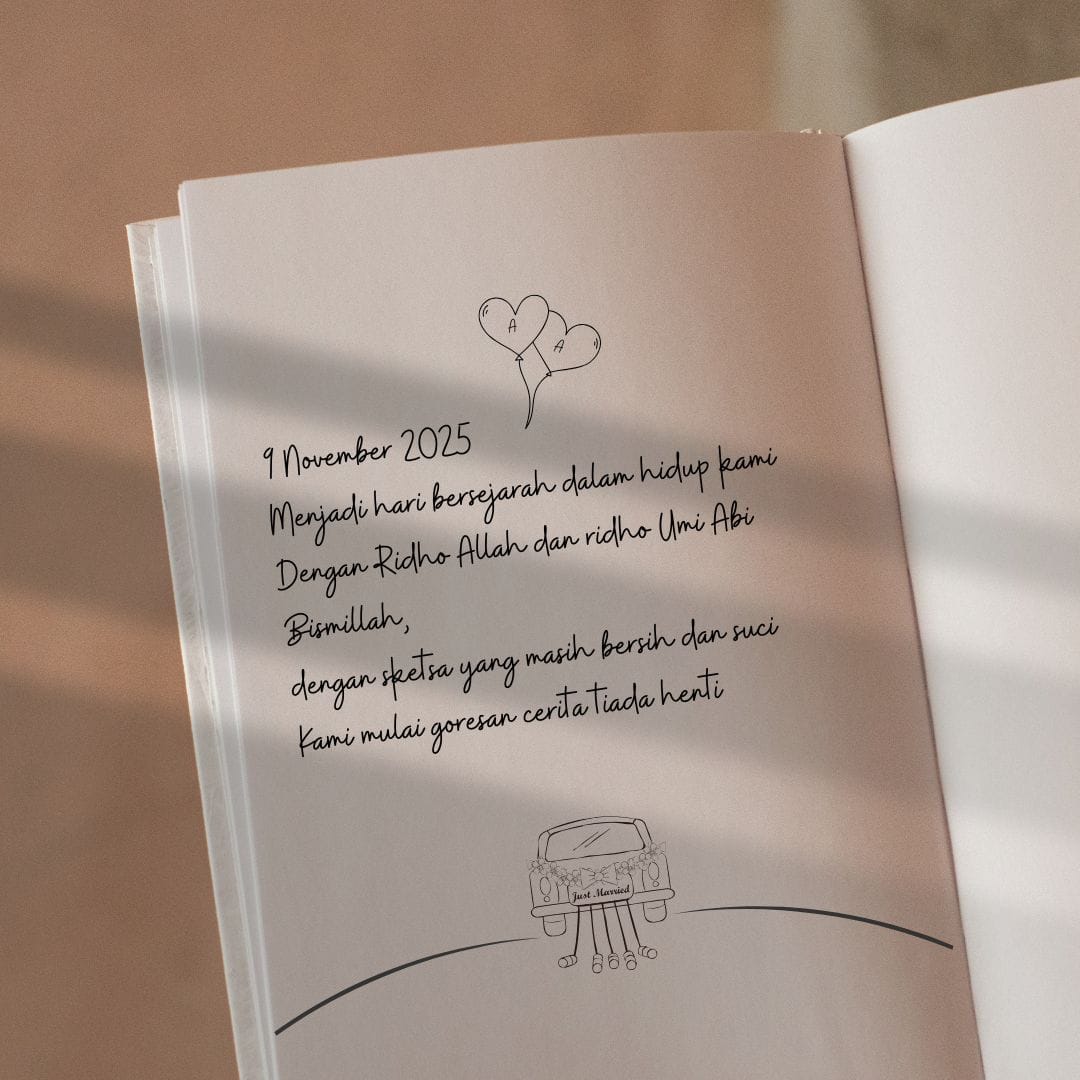 A
A
9 November 2025
Menjadi hari bersejarah dalam hidup kami
Dengan Ridho Allah dan ridho Umi Abi
Bismillah,
dengan sketsa yang masih bersih dan suci
Kami mulai goresan cerita tiada henti
Just Married